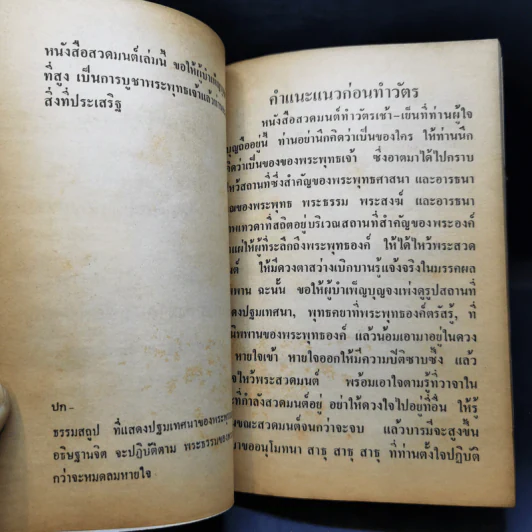 หนังสือสวดมนต์เล่มนี้ ขอให้ผู้บำเพ็ญ
ที่สูง เป็นการบูชาพระพุทธเจ้าแล้ว
สิ่งที่ประเสริฐ
ปก -
ธรรมสถูป ที่แสดงปฐมเทศนาของพระพุทธ
อธิษฐานจิต จะปฏิบัติตาม พระธรรมของ
กว่าจะหมดลมหายใจ
คำแนะแนวก่อนทำวัตร
หนังสือสวดมนต์ทำวัตรเช้า-เย็นที่ท่านผู้ใจ
บุญถืออยู่นี้ ท่านอย่านึกคิดว่าเป็นของใคร ให้ท่านนึก
คิดว่าเป็นของของพระพุทธเจ้า ซึ่งอาตมาได้ไปกราบ
ไหว้สถานที่ซึ่งสำคัญของพระพุทธศาสนา และอารธนา
คุณของพระพุทธ พระธรรม พระสงฆ์ และอารธนา
เทพเทวดาที่สถิตอยู่บริเวณสถานที่สำคัญของพระองค์
แผ่ให้ผู้ที่ระลึกถึงพระพุทธองค์ ให้ได้ไหว้พระสวด
มนต์ ให้มีดวงตาสว่างเบิกบานรู้แจ้งจริงในมรรคผล
นิพพาน ฉะนั้น ขอให้ผู้บำเพ็ญบุญจงเพ่งดูรูปสถานที่
แสดงปฐมเทศนา, พุทธคยาที่พระพุทธองค์ตรัสรู้, ที่
นิพพานของพระพุทธองค์ แล้วน้อมเอามาอยู่ในดวง
หายใจเข้า หายใจออกให้มีความปีติซาบซึ้ง แล้ว
ไหว้พระสวดมนต์ พร้อมเอาใจตามรู้ที่วาจาใน
ที่กำลังสวดมนต์อยู่ อย่าให้ดวงใจไปอยู่ที่อื่น ให้รู้
ขณะสวดมนต์จนกว่าจะจบ แล้วบารมีจะสูงขึ้น
ขออนุโมทนา สาธุ สาธุ สาธุ ที่ท่านตั้งใจปฏิบัติ